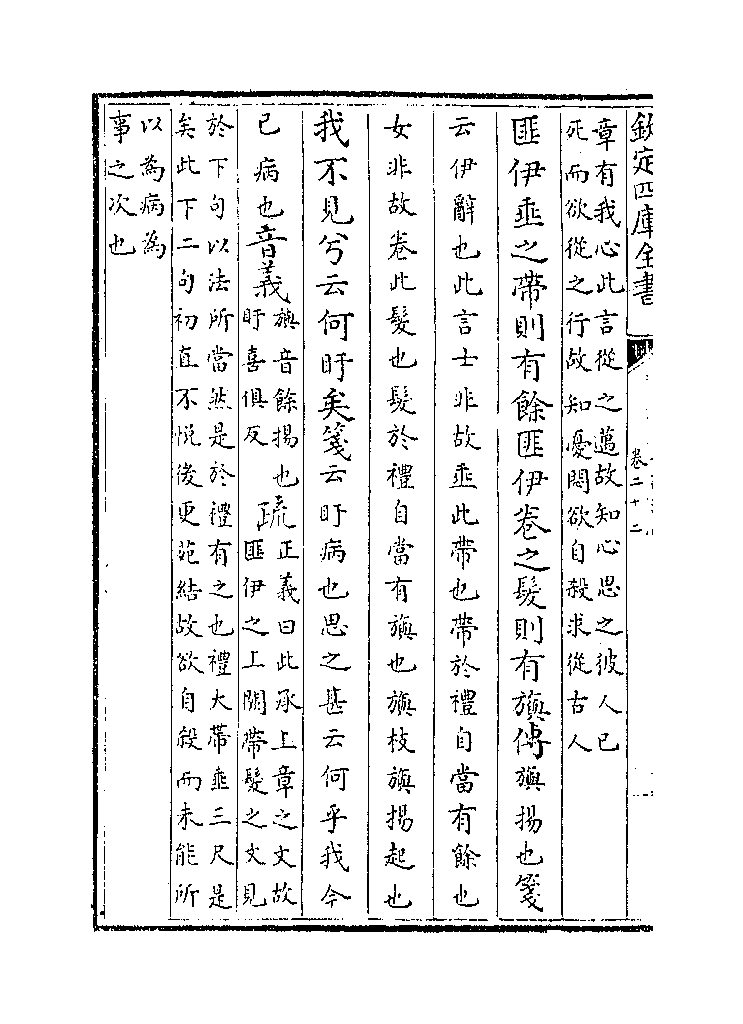 欽定四庫全書
卷二十二
章有我心此言從之邁故知心思之彼人已
死而欲從之行故知憂悶欲自殺求從古人
匪伊垂之帶則有餘匪伊卷之髮則有旟傳旟揚也箋
云伊辭也此言士非故垂此帶也帶於禮自當有餘也
女非故卷此髮也髮於禮自當有旟也旟枝旟揚起也
我不見兮云何盱矣箋云盱病也思之甚云何乎我今
已病也音義
旟音餘揚也
盱喜俱反
疏
正義曰此承上章之文故
匪伊之上闕帶髮之文見
於下句以法所當然是於禮有之也禮大帶垂三尺是
矣此下二句初直不悅後更苑結故欲自殺而未能所
以為病為
事之次也